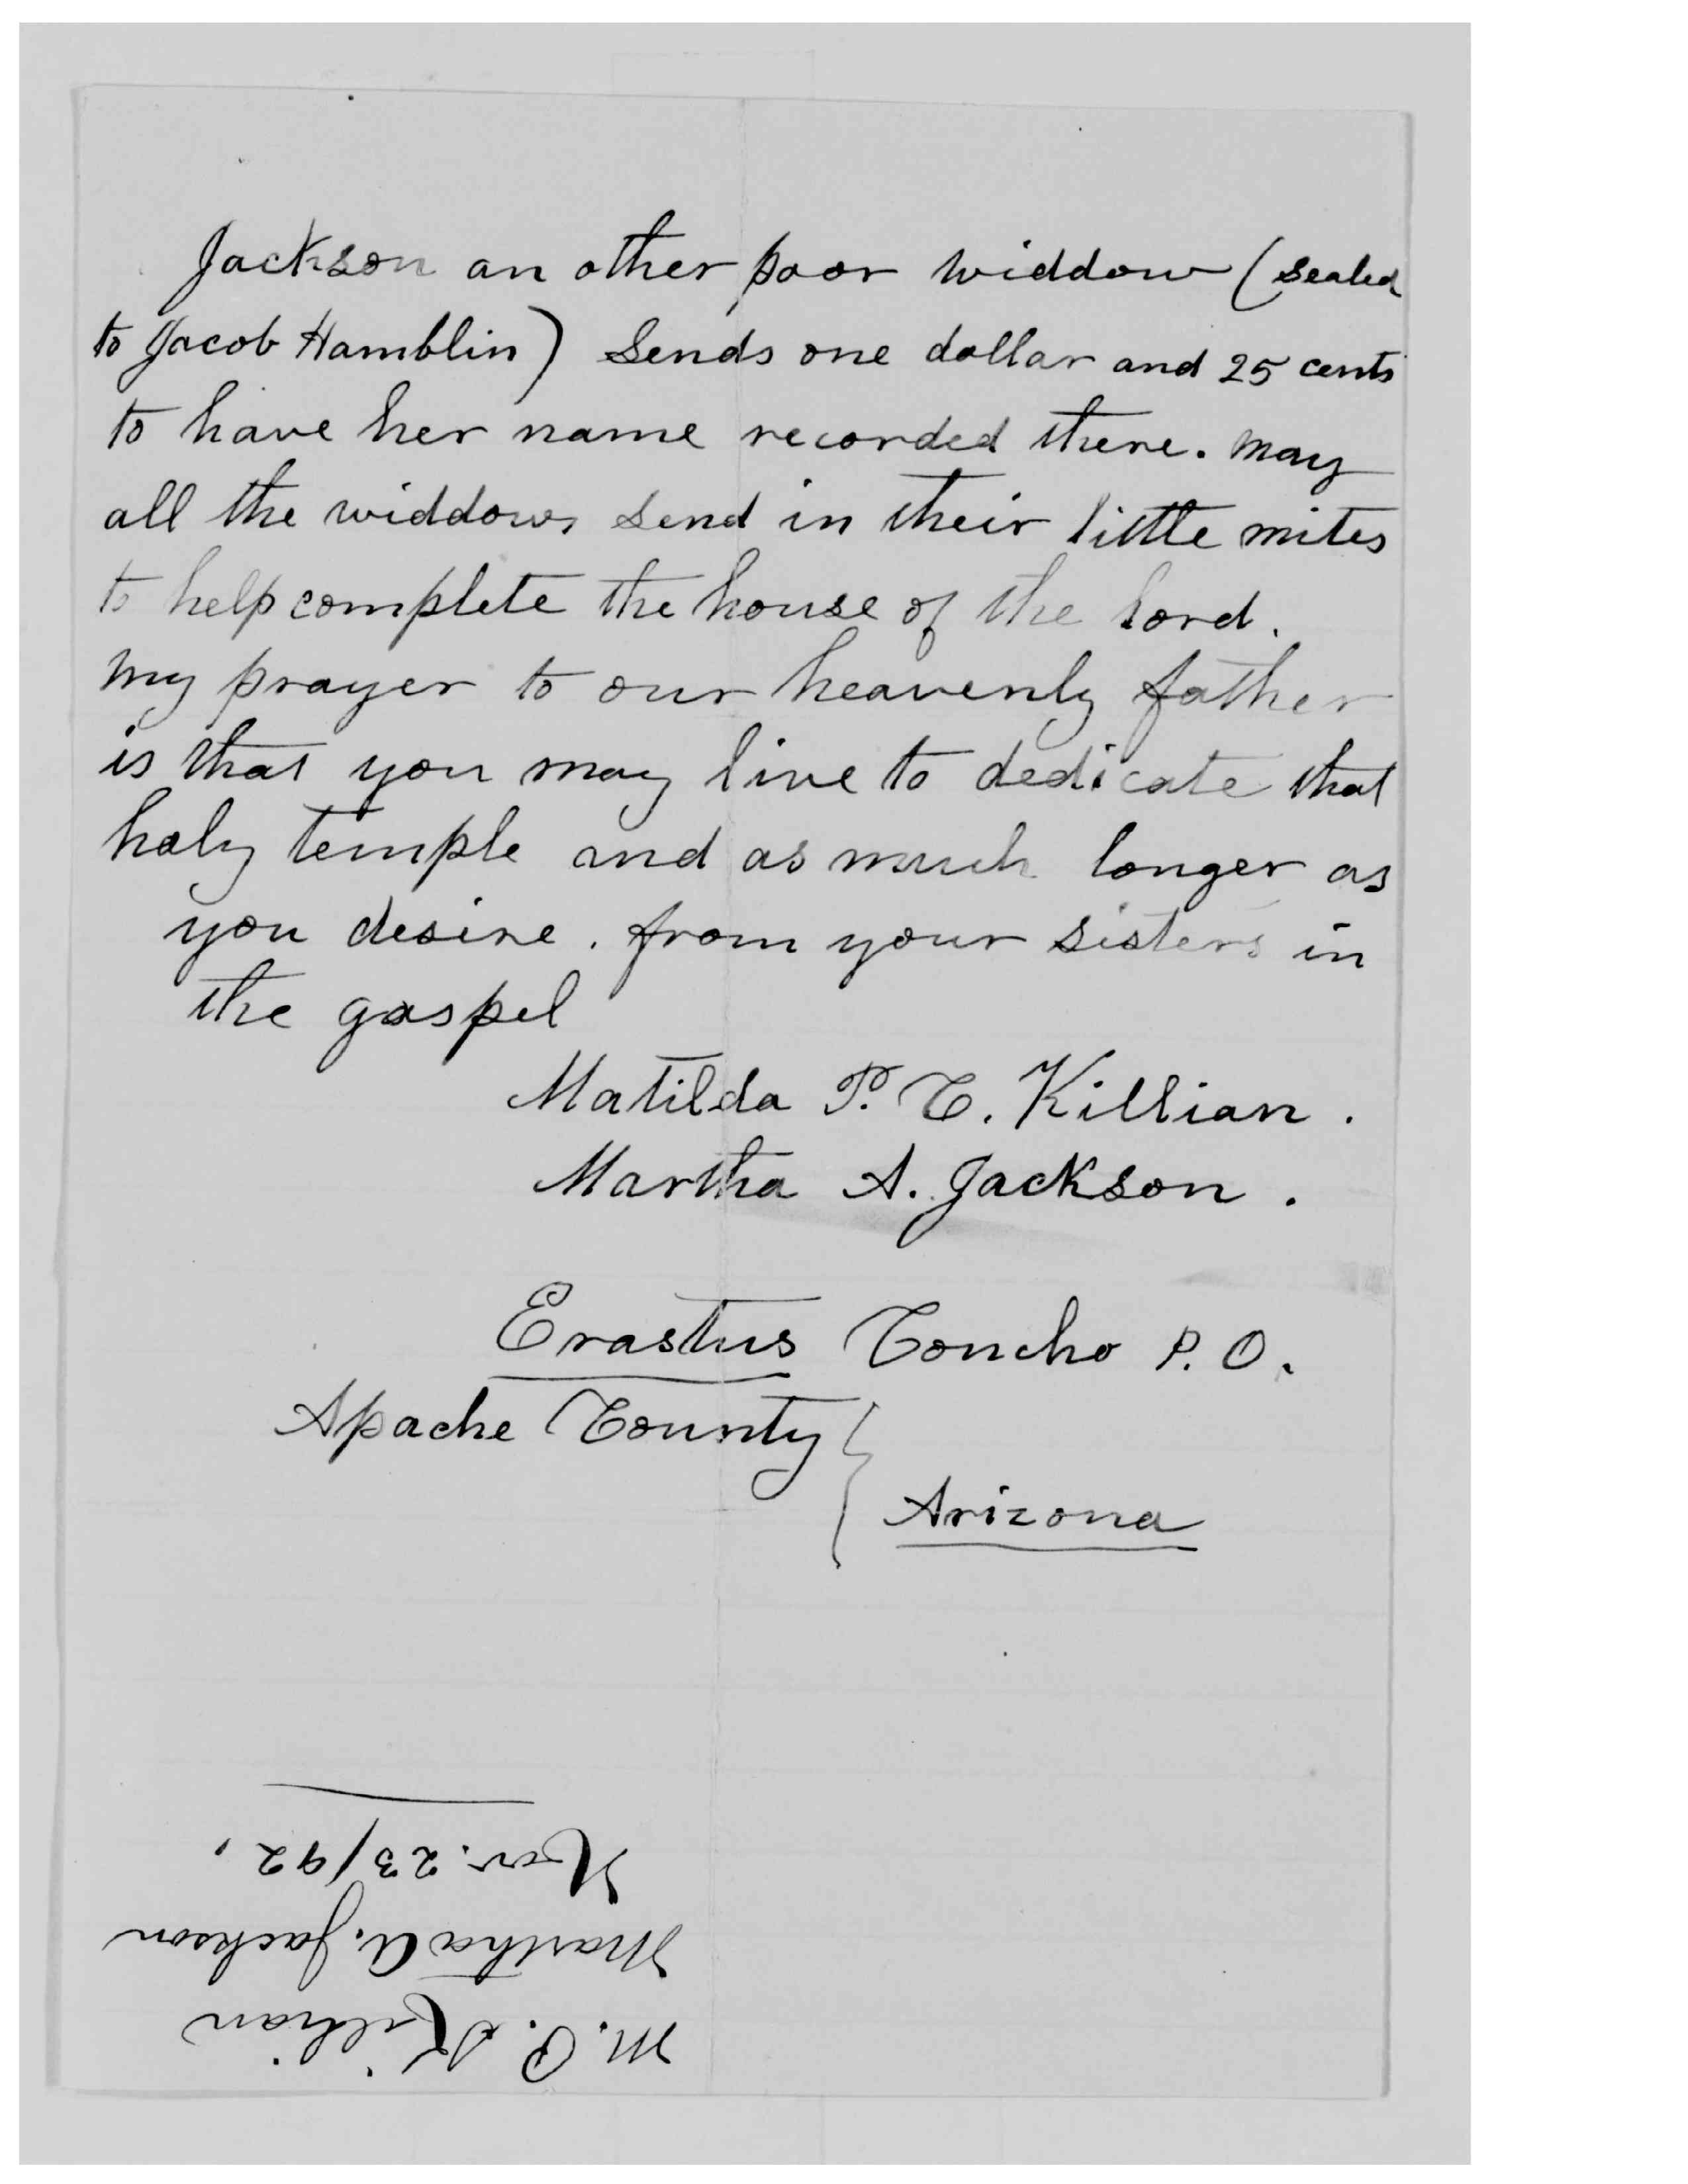 Jackson an other poor widdow (sealed
to Jacob Hamblin) Sends one dollar and 25 cents
to have her name recorded there. may
all the widdows send in their little mites
to help complete the house of the Lord.
my prayer to our heavenly father
is that you may live to dedicate that
holy temple and as much longer as
you desire. from your sisters in
the gospel
Matilda P. C. Killian.
Martha A. Jackson.
Erastus Concho P.O.
Apache County }
Arizona
M. P. Killian
Martha A. Jackson
Nov. 23/92,